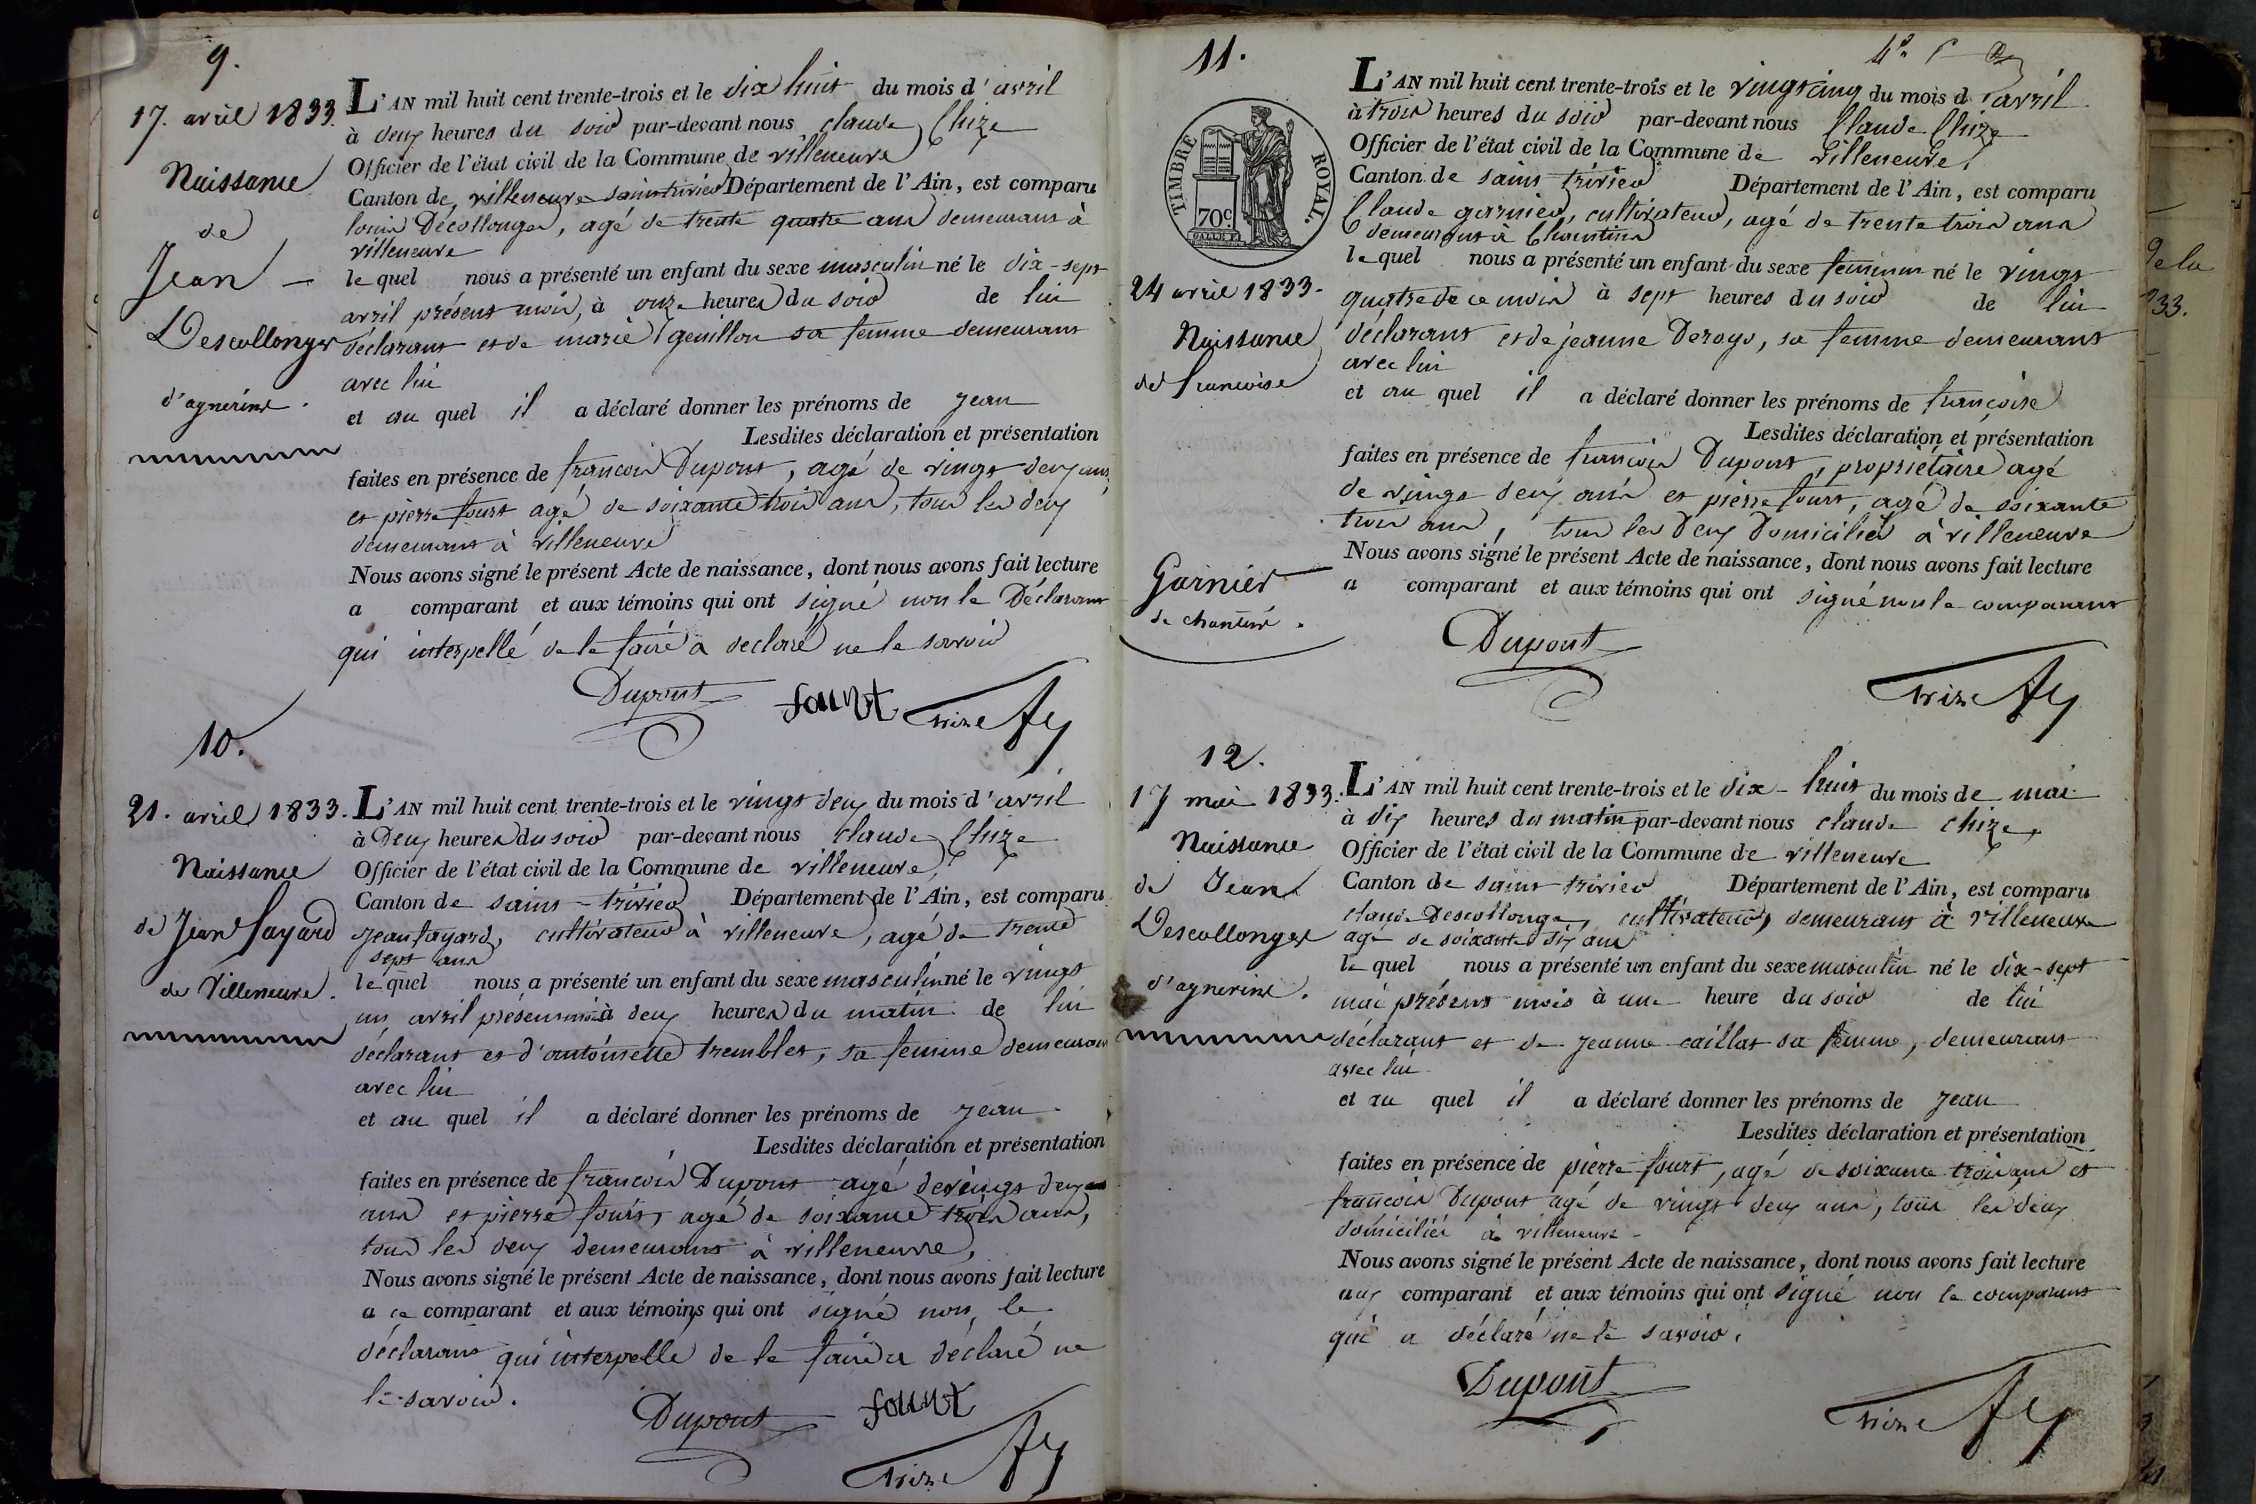 9.
17. avril 1833.
Naissance
de
Jean
Descollonges
d'agnerins.
L'AN mil huit cent trente-trois et le dix huit du mois d'avril
à deux heures du soir par-devant nous claude Chize
Officier de l'état civil de la Commune de villeneuve
Canton de villeneuve saint trivier Département de l'Ain, est comparu
louis Décollonges, agé de trente quatre ans demeurant à
villeneuve
le quel nous a présenté un enfant du sexe masculin né le dix-sept
avril présent mois, à onze heures du soir de lui
déclarant et de marie genillon sa femme demeurant
avec lui
et au quel il a déclaré donner les prénoms de jean
Lesdites déclaration et présentation
faites en présence de francois Dupont, agé de vingt deux ans,
et pierre fourt agé de soixante trois ans, tous les deux
demeurant à villeneuve
Nous avons signé le présent Acte de naissance, dont nous avons fait lecture
a comparant et aux témoins qui ont signé non le Déclarant
qui interpellé de le faire a declaré ne le savoir
Dupont fourt
10.
21. avril 1833.
Naissance
de Jean fayard
de Villeneuve.
L'AN mil huit cent trente-trois et le vingt deux du mois d'avril
à Deux heures du soir par-devant nous claude Chize
Officier de l'état civil de la Commune de villeneuve,
Canton de saint-trivier Département de l'Ain, est comparu
jean fayard, cultivateur à villeneuve, agé de trente
sept ans
le quel nous a présenté un enfant du sexe masculin né le vingt
un avril présent mois à deux heures du matin de lui
déclarant et d'antoinette tremblet, sa femme demeurant
avec lui
et au quel il a déclaré donner les prénoms de jean
Lesdites déclaration et présentation
faites en présence de francois Dupont agé de vingt deux
ans et pierre fourt, agé de soixante trois ans,
tous les deux demeurant à villeneuve,
Nous avons signé le présent Acte de naissance, dont nous avons fait lecture
a ce comparant et aux témoins qui ont signé non, le
déclarant qui interpellé de le faire a déclaré ne
le savoir.
Dupont fourt
11.
TIMBRE ROYAL.
70c.
24 avril 1833.
Naissance
de francoise
Garnier
de chantins.
L'AN mil huit cent trente-trois et le vingt cinq du mois d'avril
à trois heures du soir par-devant nous Claude Chize
Officier de l'état civil de la Commune de villeneuve,
Canton de saint trivier Département de l'Ain, est comparu
Claude garnier, cultivateur, agé de trente trois ans
demeurant à Chantins
le quel nous a présenté un enfant du sexe feminin né le vingt
quatre de ce mois à sept heures du soir de lui
déclarant et de jeanne Deroys, sa femme demeurant
avec lui
et au quel il a déclaré donner les prénoms de françoise
Lesdites déclaration et présentation
faites en présence de francois Dupont, propriétaire agé
de vingt deux ans et pierre fourt, agé de soixante
trois ans, tous les deux domiciliés à villeneuve
Nous avons signé le présent Acte de naissance, dont nous avons fait lecture
a comparant et aux témoins qui ont signé non le comparant
Dupont
12.
17 mai 1833.
Naissance
de Jean
Descollonges
d'agnerins.
L'AN mil huit cent trente-trois et le dix-huit du mois de mai
à dix heures du matin par-devant nous claude chize,
Officier de l'état civil de la Commune de villeneuve
Canton de saint trivier Département de l'Ain, est comparu
claude Descollonges, cultivateur, demeurant à villeneuve
agé de soixante dix ans
le quel nous a présenté un enfant du sexe masculin né le dix-sept
mai présent mois à une heure du soir de lui
déclarant et de jeanne caillat sa femme, demeurant
avec lui
et au quel il a déclaré donner les prénoms de jean
Lesdites déclaration et présentation
faites en présence de pierre fourt, agé de soixante trois ans et
francois Dupont agé de vingt deux ans, tous les deux
domiciliés à villeneuve
Nous avons signé le présent Acte de naissance, dont nous avons fait lecture
aux comparant et aux témoins qui ont signé non le comparant
qui a déclaré ne le savoir.
Dupont
de la
33.